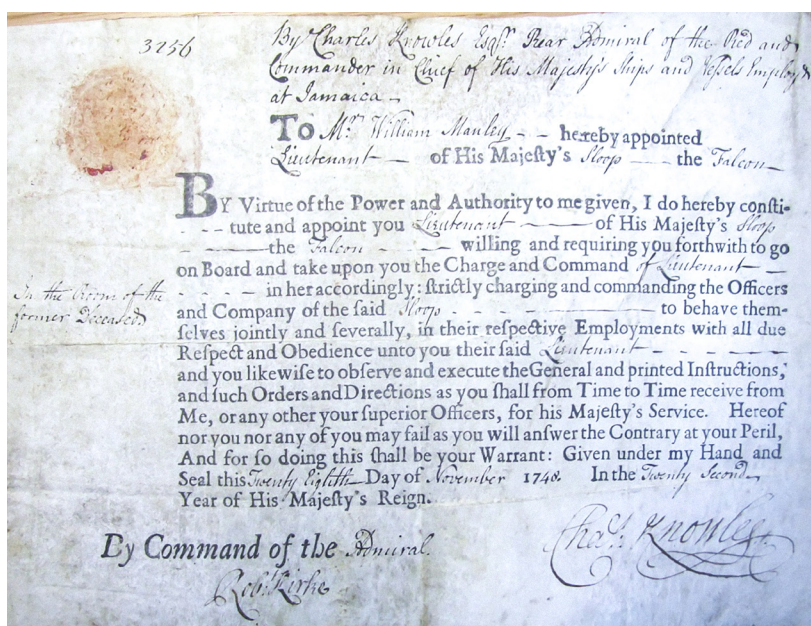 3256
By Charles Knowles Esqr. Rear Admiral of the Red and
Commander in Chief of His Majesty's Ships and Vessels Employ'd
at Jamaica –
To Mr. William Manley - - hereby appointed
Lieutenant — of His Majeſty's Sloop — the Falcon —
BY Virtue of the Power and Authority to me given, I do hereby conſti-
- - - tute and appoint you Lieutenant — of His Majeſty's Sloop
- — the Falcon - — - willing and requiring you forthwith to go
on Board and take upon you the Charge and Command of Lieutenant —
- - - - - in her accordingly: ſtrictly charging and commanding the Officers
In the Room of the
former Deceased
and Company of the ſaid Sloop - - - - — to behave them-
ſelves jointly and ſeverally, in their reſpective Employments with all due
Reſpect and Obedience unto you their ſaid Lieutenant — - - - —
and you likewiſe to obſerve and execute the General and printed Inſtructions,
and ſuch Orders and Directions as you ſhall from Time to Time receive from
Me, or any other your ſuperior Officers, for his Majeſty's Service. Hereof
nor you nor any of you may fail as you will anſwer the Contrary at your Peril,
And for ſo doing this ſhall be your Warrant: Given under my Hand and
Seal this Twenty Eighth Day of November 1748. In the Twenty Second
Year of His Majeſty's Reign.
Chas. Knowles
By Command of the Admiral.
Robt. Kirke